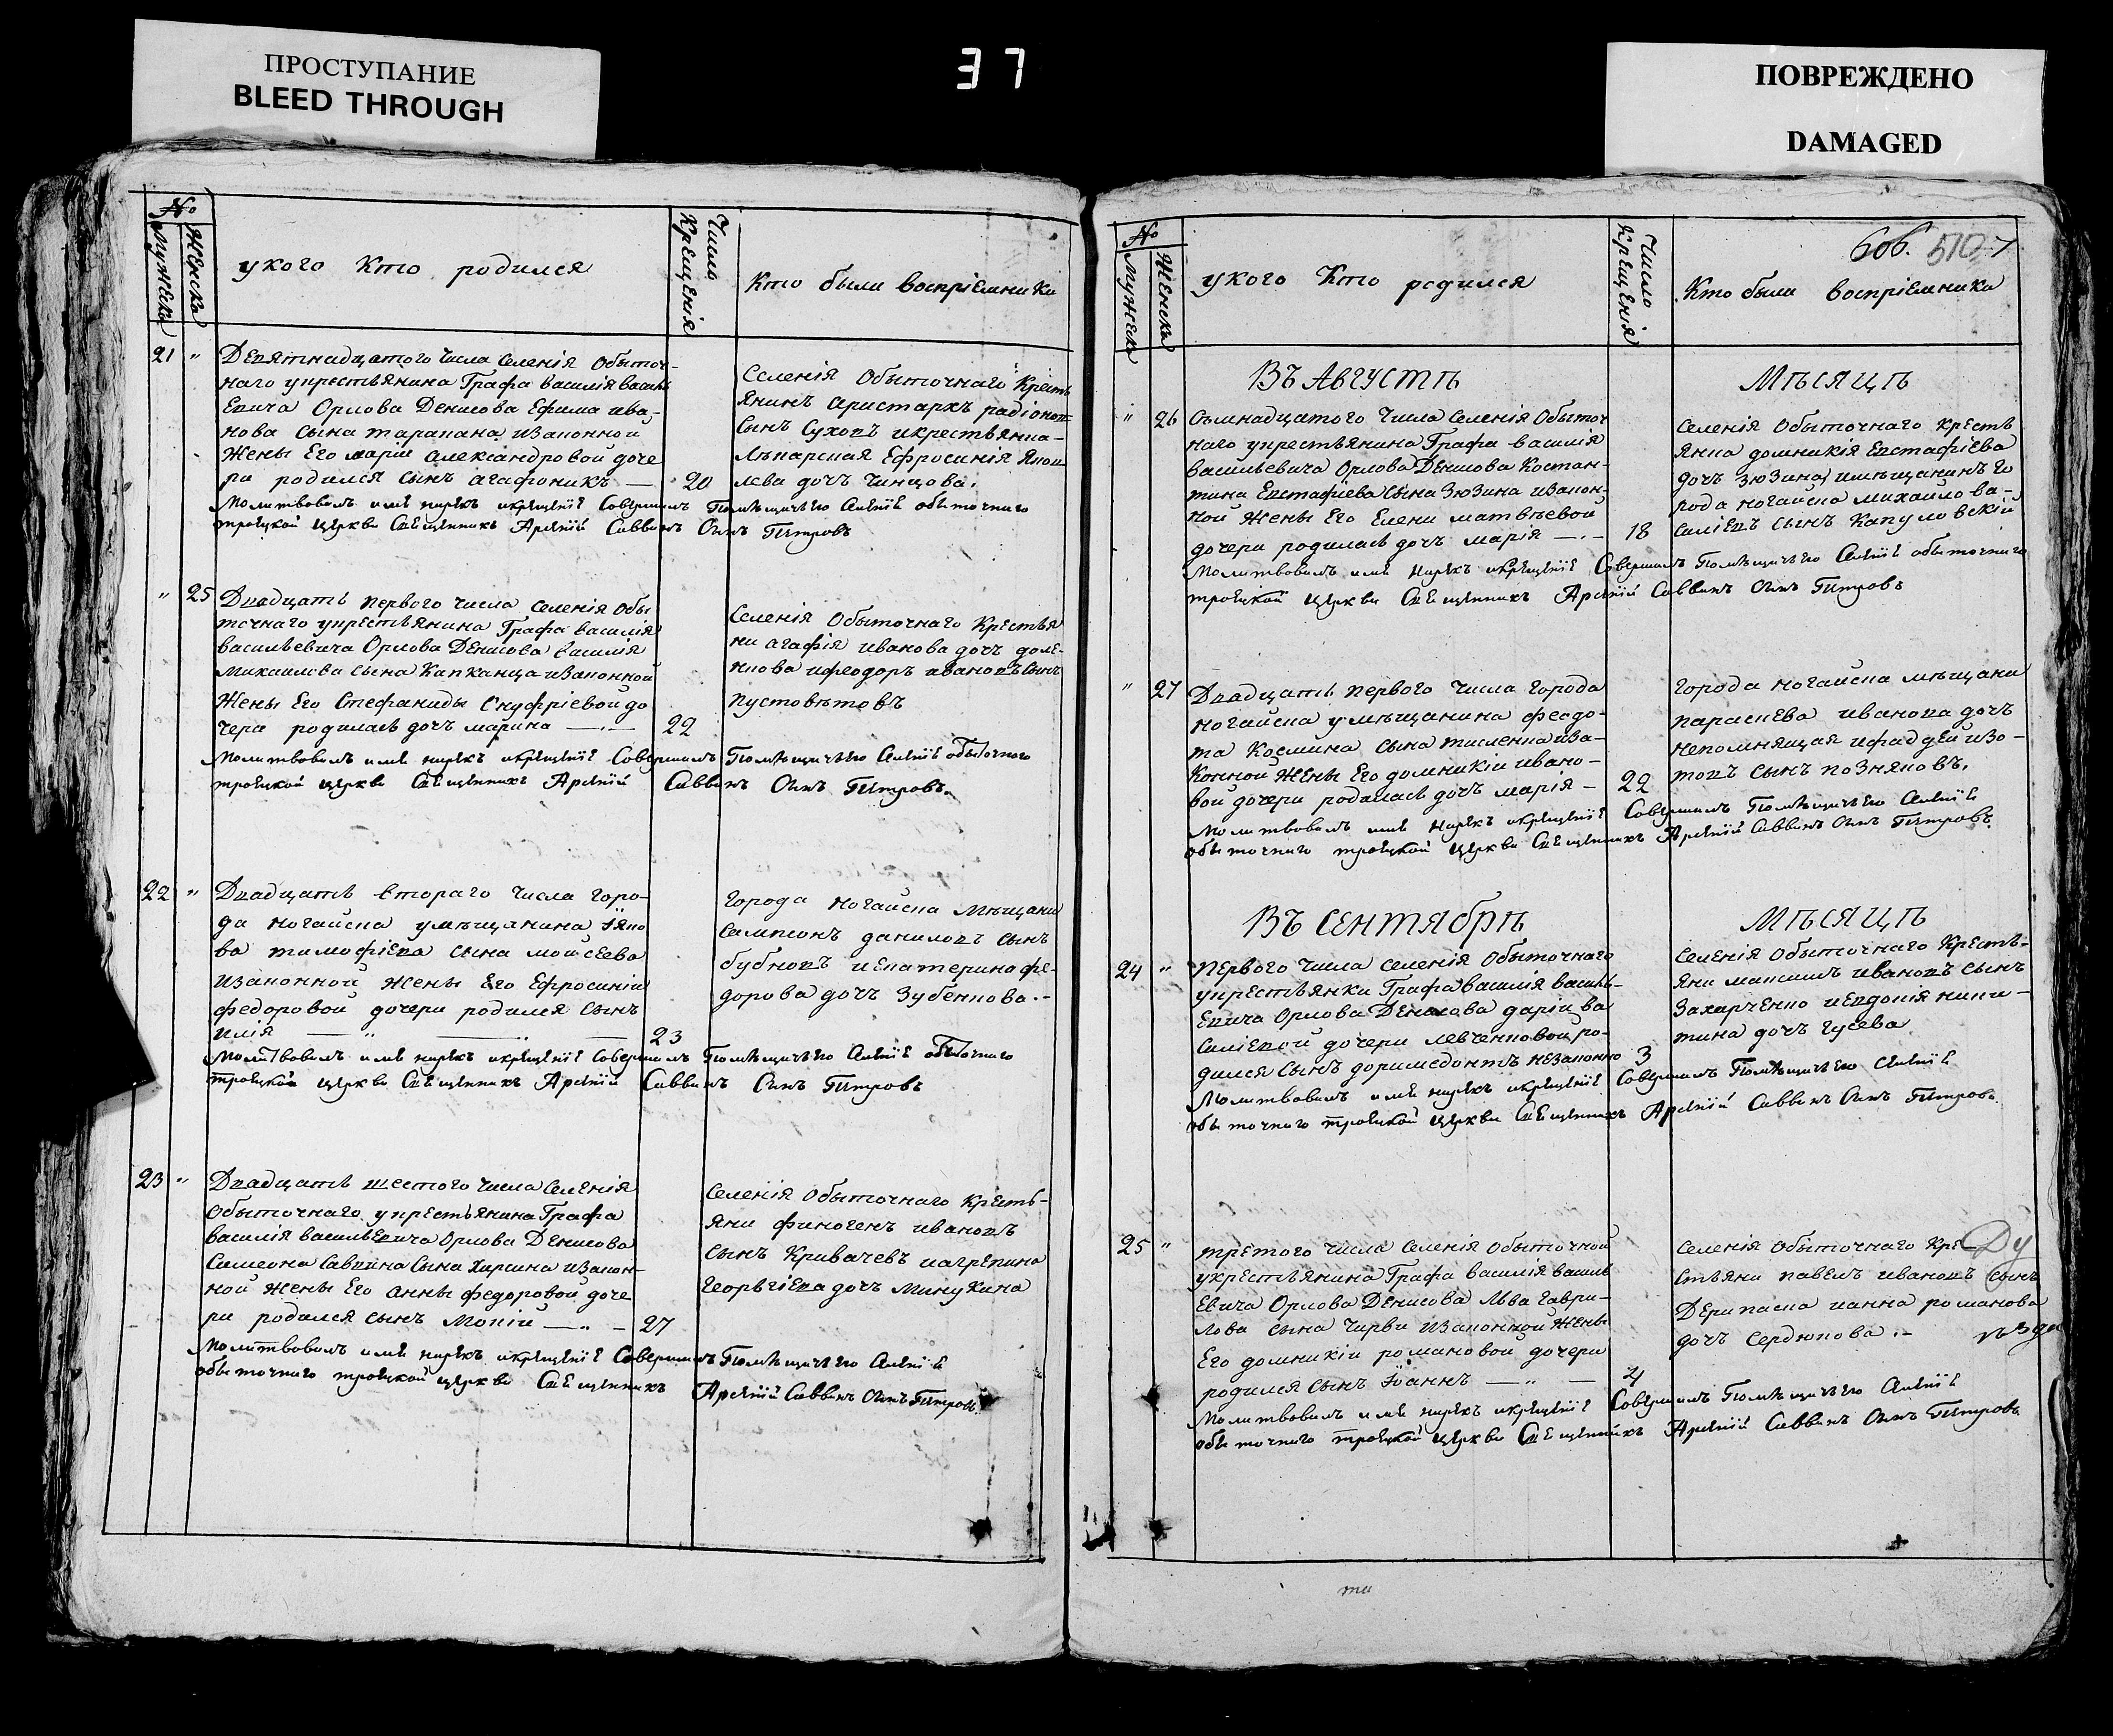 ПРОСТУПАНИЕ
BLEED THROUGH
37
ПОВРЕЖДЕНО
DAMAGED
№
Мужеска
Женска
укого Кто родился
Число
Крещенія
Кто были воспріемники
21 "
Девятнадцатого Числа Селенія Обыточ-
наго укрестьянина Графа василія василь
Евича Орлова Денисова Ефима ива-
нова сына тарапана изаконной
Жены Его маріи александровой доче
ри родился сынъ агафоникъ — 20
Селенія Обыточнаго Кресть
янинъ аристархъ радіонов
Сынъ Суховъ икрестьянка-
Ефросинія Яков
лева дочь Чинцова.
Молитвовалъ имя нарекъ икрещеніе Совершилъ Помещичьего Селеніе обыточнаго
троецкой церкви Священникъ Арсений Саввинъ Сынъ Петровъ
" 25
Двадцать первого числа селенія Обы
точнаго укрестьянина Графа василія
васильевича Орлова Денисова василія
Михаилова сына Капканца изаконной
Жены Его Стефаниды Онуфріевой до
чери родилась дочь марина —.— 22
Селенія Обыточнаго Крестья
ни агафія иванова дочь доле-
нкова ифеодоръ ивановъ сынъ
пустовѣтовъ
Молитвовалъ имя нарекъ икрещеніе Совершилъ Помещичьего Селеніе обыточного
троецкой церкви Священникъ Арсений Саввинъ Сынъ Петровъ.
22 "
Двадцать втораго Числа горо-
да ногайска умѣщанина Іяко
ва тимофіева сына мойсеева
изаконной жены Его Ефросиніи
федоровой дочери родился сынъ
илія — 23
города ногайска мѣщани
сампсонъ даниловъ сынъ
бубновъ иЕкатерина фе-
дорова дочь Зубенкова.-
Молитвовалъ имя нарекъ икрещеніе Совершилъ Помещичьего Селеніе обыточнаго
троецкой церкви Священникъ Арсений Саввинъ Сынъ Петровъ
23 "
Двадцать шестого числа Селенія
Обыточнаго укрестьянина Графа
василія васильевича Орлова Денисова
Симеона Саввина Сына Хирсина изакон-
ной жены Его анны федоровой доче
ри родился сынъ Мокій —"— 27
Селенія Обыточнаго Кресть-
яни финогенъ ивановъ
сынъ Кривачевъ иагрепина
Георьгіева дочь Минукина
Молитвовалъ имя нарекъ икрещеніе Совершилъ Помещичьего Селеніе
обыточнаго троецкой церкви Священникъ Арсений Саввинъ Сынъ Петровъ.
№
Мужеска
Женска
укого Кто родился
Число
Крещенія
606. 510
Кто были воспріемники
Въ Августѣ Мѣсяцѣ
" 26
Осьмнадцатого Числа Селенія Обыточ
наго укрестьянина Графа василія
васильевича Орлова Денисова Костан-
тина Евстафіева сына Зюзина изакон-
ной жены Его Елени матвѣевой
дочери родилась дочь марія —.— 18
Селенія Обыточнаго Кресть
янка домникія Евстафіева
дочь зюзина, имѣщанинъ го
рода ногайска михайло ва-
силіевъ сынъ Капуловскій
Молитвовалъ имя нарекъ икрещеніе Совершилъ Помещичьего Селеніе обыточнаго
троецкой церкви Священникъ Арсений Саввинъ Сынъ Петровъ
" 27
Двадцать первого Числа города
ногайска умѣщанина феодо-
та Космина сына тисленка иза-
конной жены Его домникіи ивано-
вой дочери родилась дочь марія — 22
города ногайска мѣщани
параскева иванова дочь
непомнящая ифаддей изо-
товъ сынъ позняковъ.
Молитвовалъ имя нарекъ икрещеніе Совершилъ Помещичьего Селеніе
обыточнаго троецкой церкви Священникъ Арсений Саввинъ Сынъ Петровъ.
Въ Сентябрѣ Мѣсяцѣ
24 "
Первого Числа Селенія Обыточнаго
укрестьянки Графа василія василь-
Евича Орлова Денисова даріи ва
силіевой дочери левченковой ро-
дился сынъ доримедонтъ незаконно 3
Селенія Обыточнаго Кресть-
яни максимъ ивановъ сынъ
Захарченко иЕвдокія ники-
тина дочь гусева
Молитвовалъ имя нарекъ икрещеніе Совершилъ Помещичьего Селеніе
обыточнаго троецкой церкви Священникъ Арсений Саввинъ Сынъ Петровъ.
25 "
третого числа Селенія Обыточной
укрестьянина Графа василія василь
Евича Орлова Денисова Льва гаври-
лова сына Чирви изаконной жены
Его домникіи романовой дочери
родился сынъ Іоаннъ —"— 4
Селенія Обыточнаго Кре-
стьяни павелъ ивановъ сынъ
Дерипаска ианна романова
дочь Сердюкова .-
Молитвовалъ имя нарекъ икрещеніе Совершилъ Помещичьего Селеніе
обыточнаго троецкой церкви Священникъ Арсений Саввинъ Сынъ Петровъ